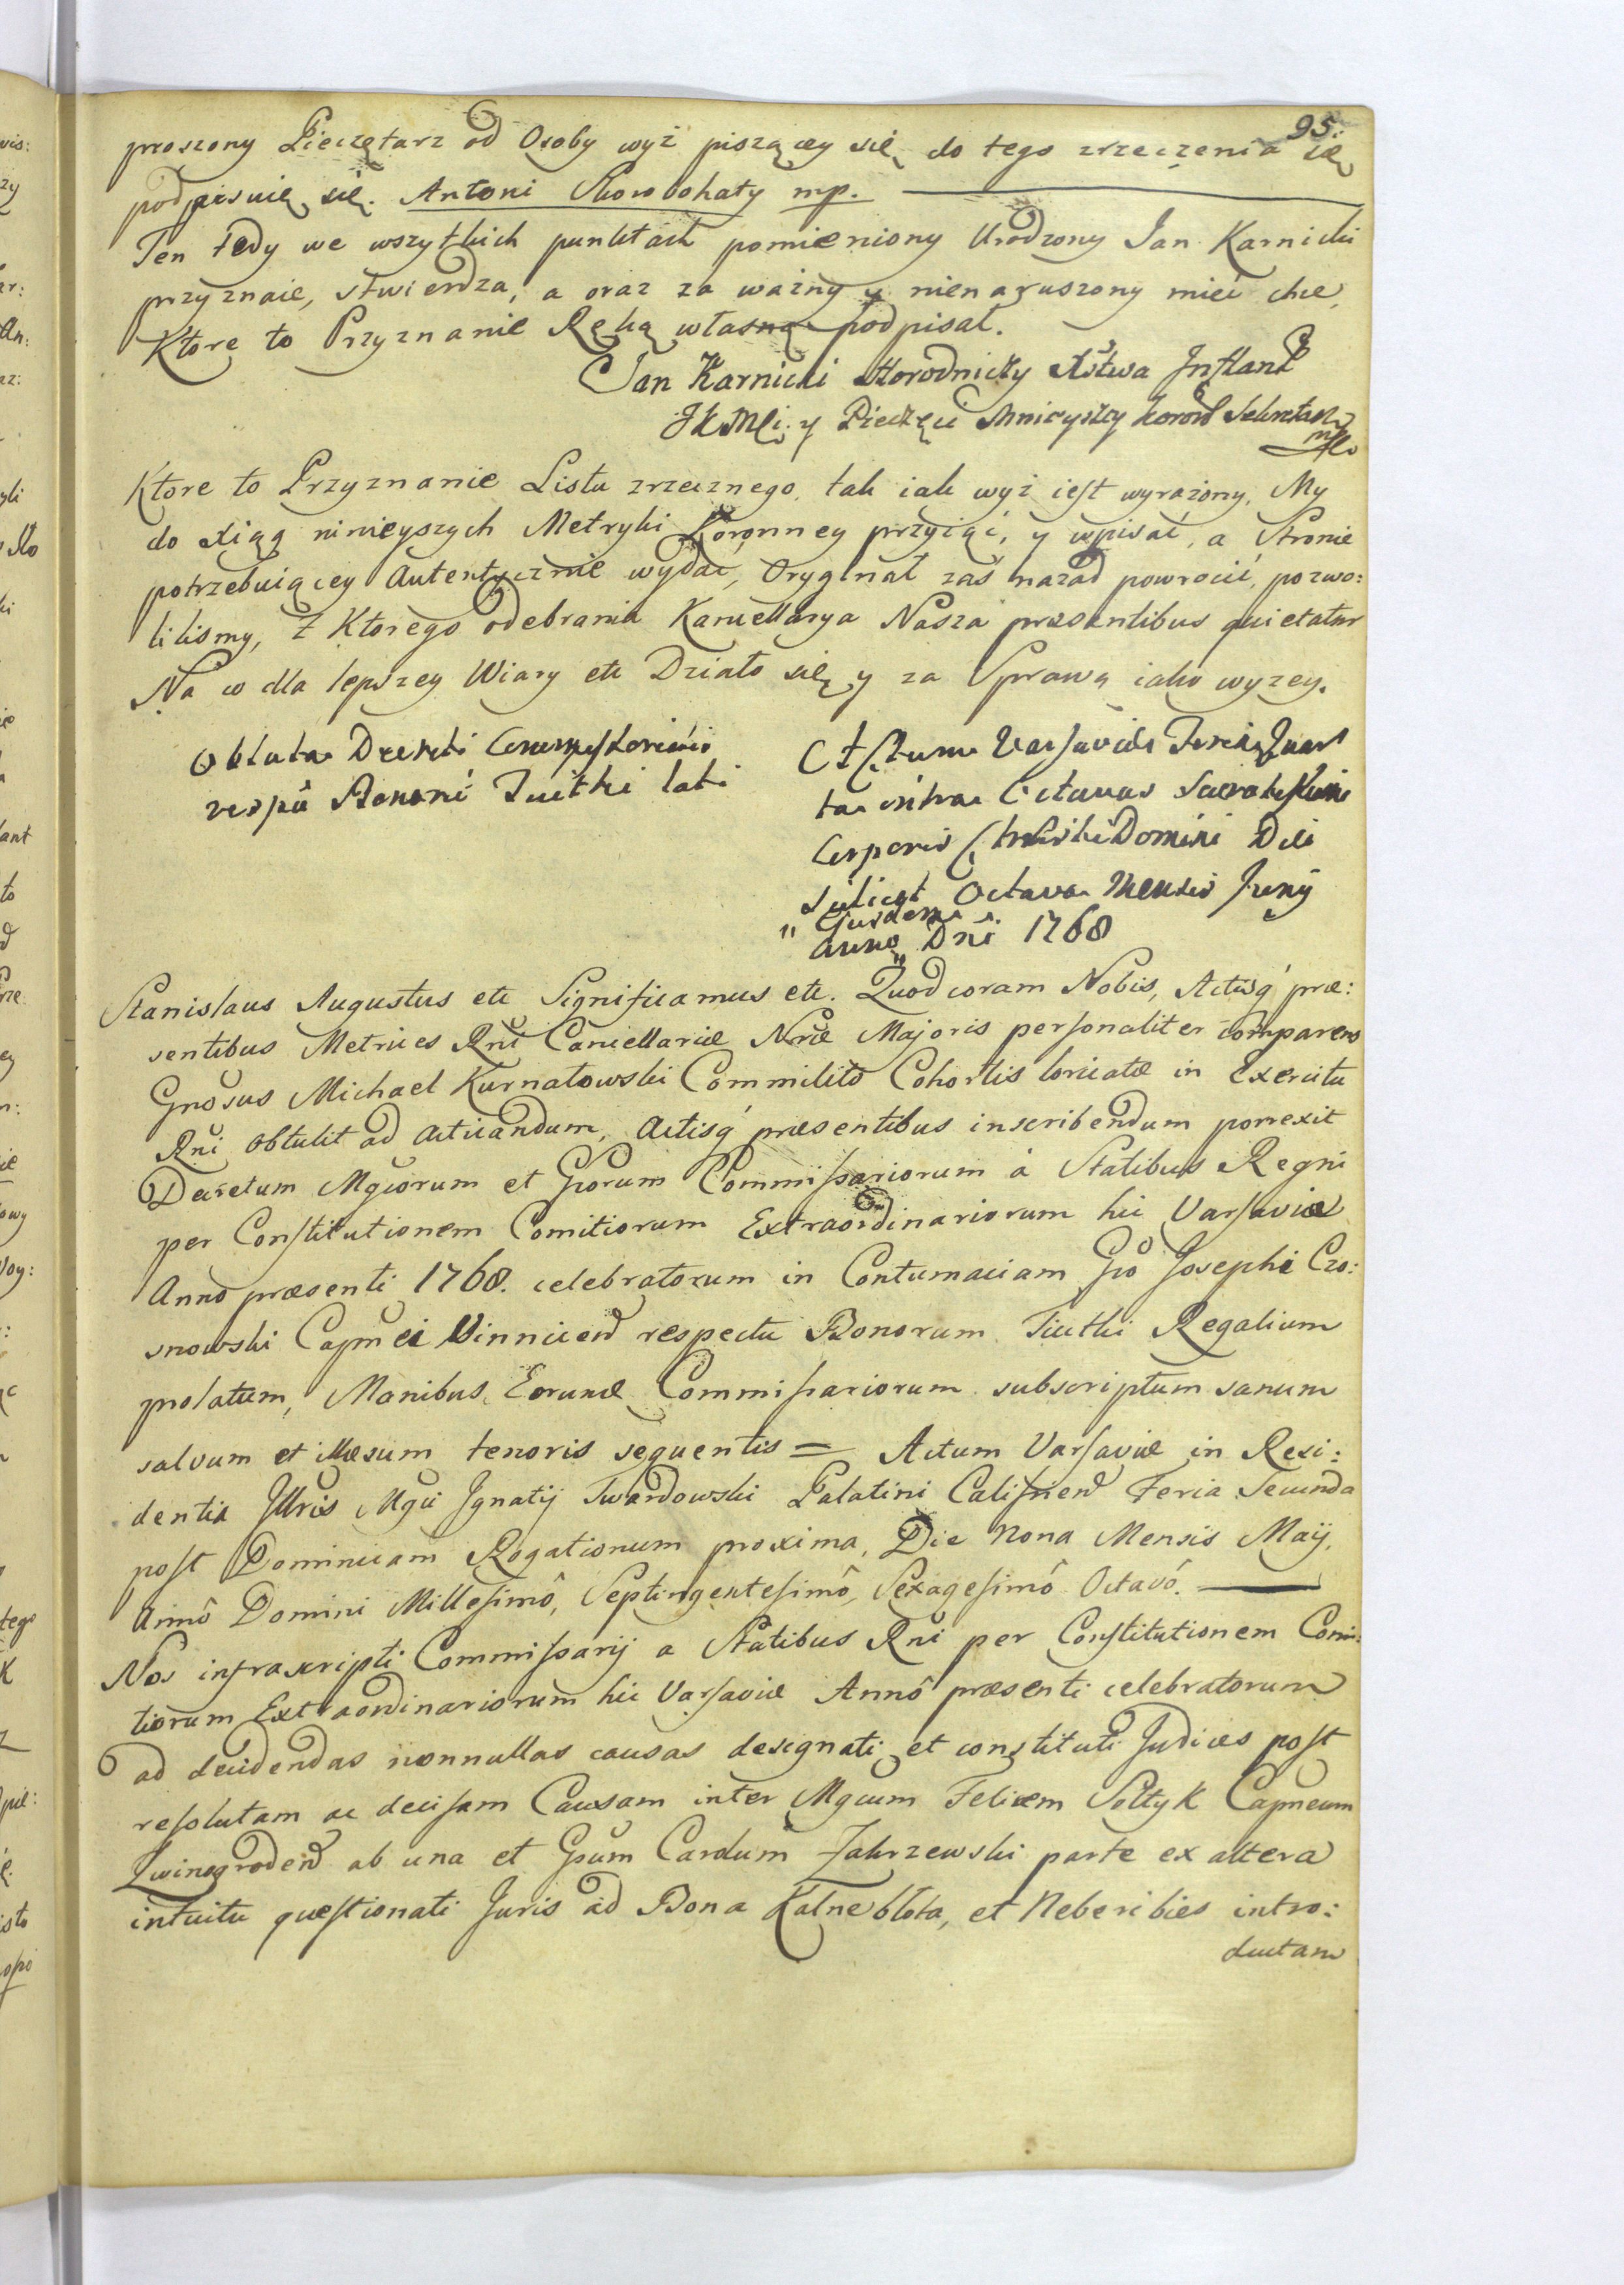 95.
proszony Pieczętarz od Osoby wyż piszącey się do tego zrzeczenia się
podpisuię się. Antoni Skorobohaty mp.
Ten tedy we wszytkich punktach pomieniony Urodzony Jan Karnicki
przyznaie, stwierdza, a oraz za ważny y nienaruszony mieć chce,
Ktore to Przyznanie Ręką własną podpisał.
Jan Karnicki Horodniczy Xstwa Inflant
JKMci y Pieczęci Mnieyszey Koron Sekretarz
mp
Ktore to Przyznanie Listu zrzecznego, tak iak wyż iest wyrażony, My
do xiąg ninieyszych Metryki Koronney przyiąć, y wpisać, a Stronie
potrzebuiącey Autentycznie wydać, Oryginał zaś nazad powrocić, pozwo:
liliśmy, z Ktorego odebrania Kancellarya Nasza præsentibus quietatur
Na co dla lepszey Wiary etc Działo się y za Sprawą iako wyżey.
Oblata Decreti Commissorialis
respū Bonorū Tuithi lati
Actum Varsaviæ Feria Quar
ta intra Octavas Sacratissimi
Corporis Christi Domini Die
scilicet Octava Mensis Junÿ
" Ejusdem
Anno " Dni 1768
Stanislaus Augustus etc Significamus etc. Quod coram Nobis, Actisq́ præ:
sentibus Metrices Rni Cancellariæ Nræ Majoris personaliter comparens
Gnosus Michael Kurnatowski Commilito Cohortis loricatæ in Exercitu
Rni obtulit ad acticandum, Actisq́ præsentibus inscribendum porrexit
Decretum Mgcorum et Gsorum Commissariorum à Statibus Regni
per Constitutionem Comitiorum Extraordinariorum hic Varsaviæ
Anno præsenti 1768. celebratorum in Contumaciam Gsō Josephi Czo:
snowski Capnei Vinnicen respectu Bonorum Tiutki Regalium
prolatum, Manibus Eorund Commissariorum subscriptum sanum
salvum et illæsum tenoris sequentis = Actum Varsaviæ in Resi:
dentia Illris Mgci Ignatij Twardowski Palatini Calissien Feria Secunda
post Dominicam Rogationum proxima, Die Nona Mensis Maij,
Annô Domini Millesimô, Septingentesimô, Sexagesimô Octavô.
Nos infrascripti Commissarij a Statibus Rni per Constitutionem Comi:
tiorum Extraordinariorum hic Varsaviæ Annô præsenti celebratorum
ad decidendas nonnullas causas designati et constituti Judices post
resolutam ac decisam Causam inter Mgcum Felicem Sołtyk Capneum
Zwinogroden ab una et Gsum Carolum Zakrzewski parte ex altera
intuitu quæstionati Juris ad Bona Kalnebłota, et Neberibies intro:
ductam